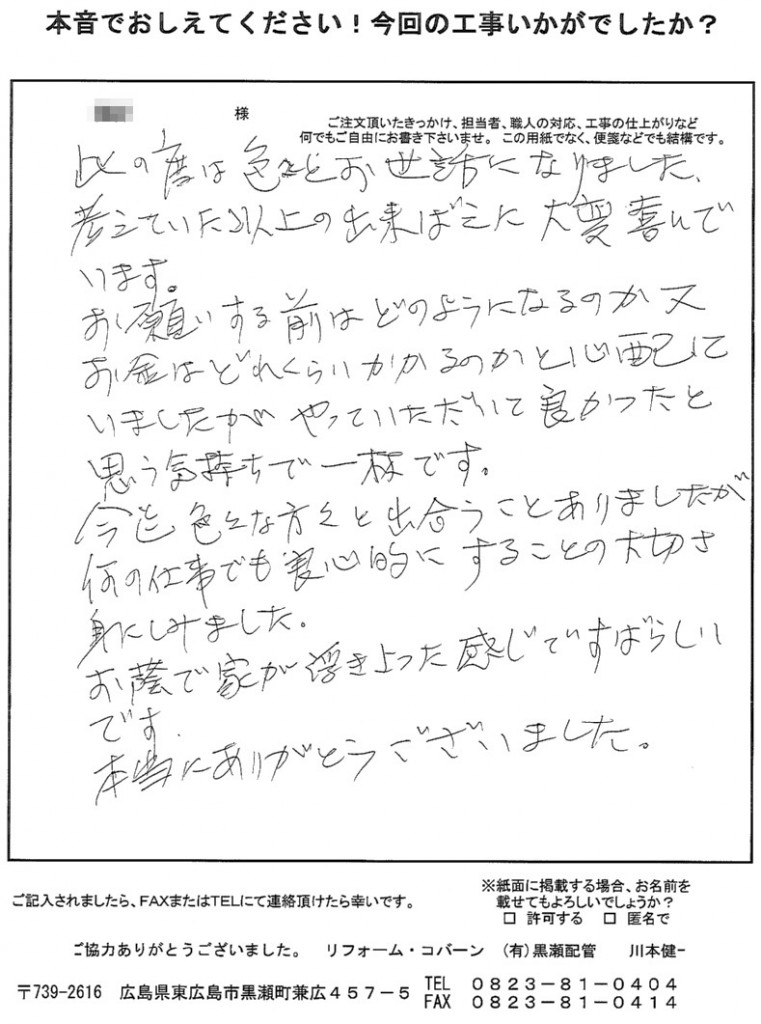 本音でおしえてください！今回の工事いかがでしたか？
様
ご注文頂いたきっかけ、担当者、職人の対応、工事の仕上がりなど
何でもご自由にお書き下さいませ。この用紙でなく、便箋などでも結構です。
此の度は色々とお世話になりました、
考えていた以上の出来ばえに大変喜んで
います。
お願いする前はどのようになるのか又
お金はどれくらいかかるのかと心配して
いましたがやっていただいて良かったと
思う気持ちで一杯です。
今迄色々な方々と出合うことありましたが
何の仕事でも良心的にすることの大切さ
身にしみました。
お蔭で家が浮き上った感じですばらしい
です.
本当にありがとうございました。
ご記入されましたら、FAXまたはTELにて連絡頂けたら幸いです。
※紙面に掲載する場合、お名前を
載せてもよろしいでしょうか？
□ 許可する □ 匿名で
ご協力ありがとうございました。 リフォーム・コバーン （有）黒瀬配管 川本健一
〒739-2616 広島県東広島市黒瀬町兼広４５７－５
TEL ０８２３－８１－０４０４
FAX ０８２３－８１－０４１４